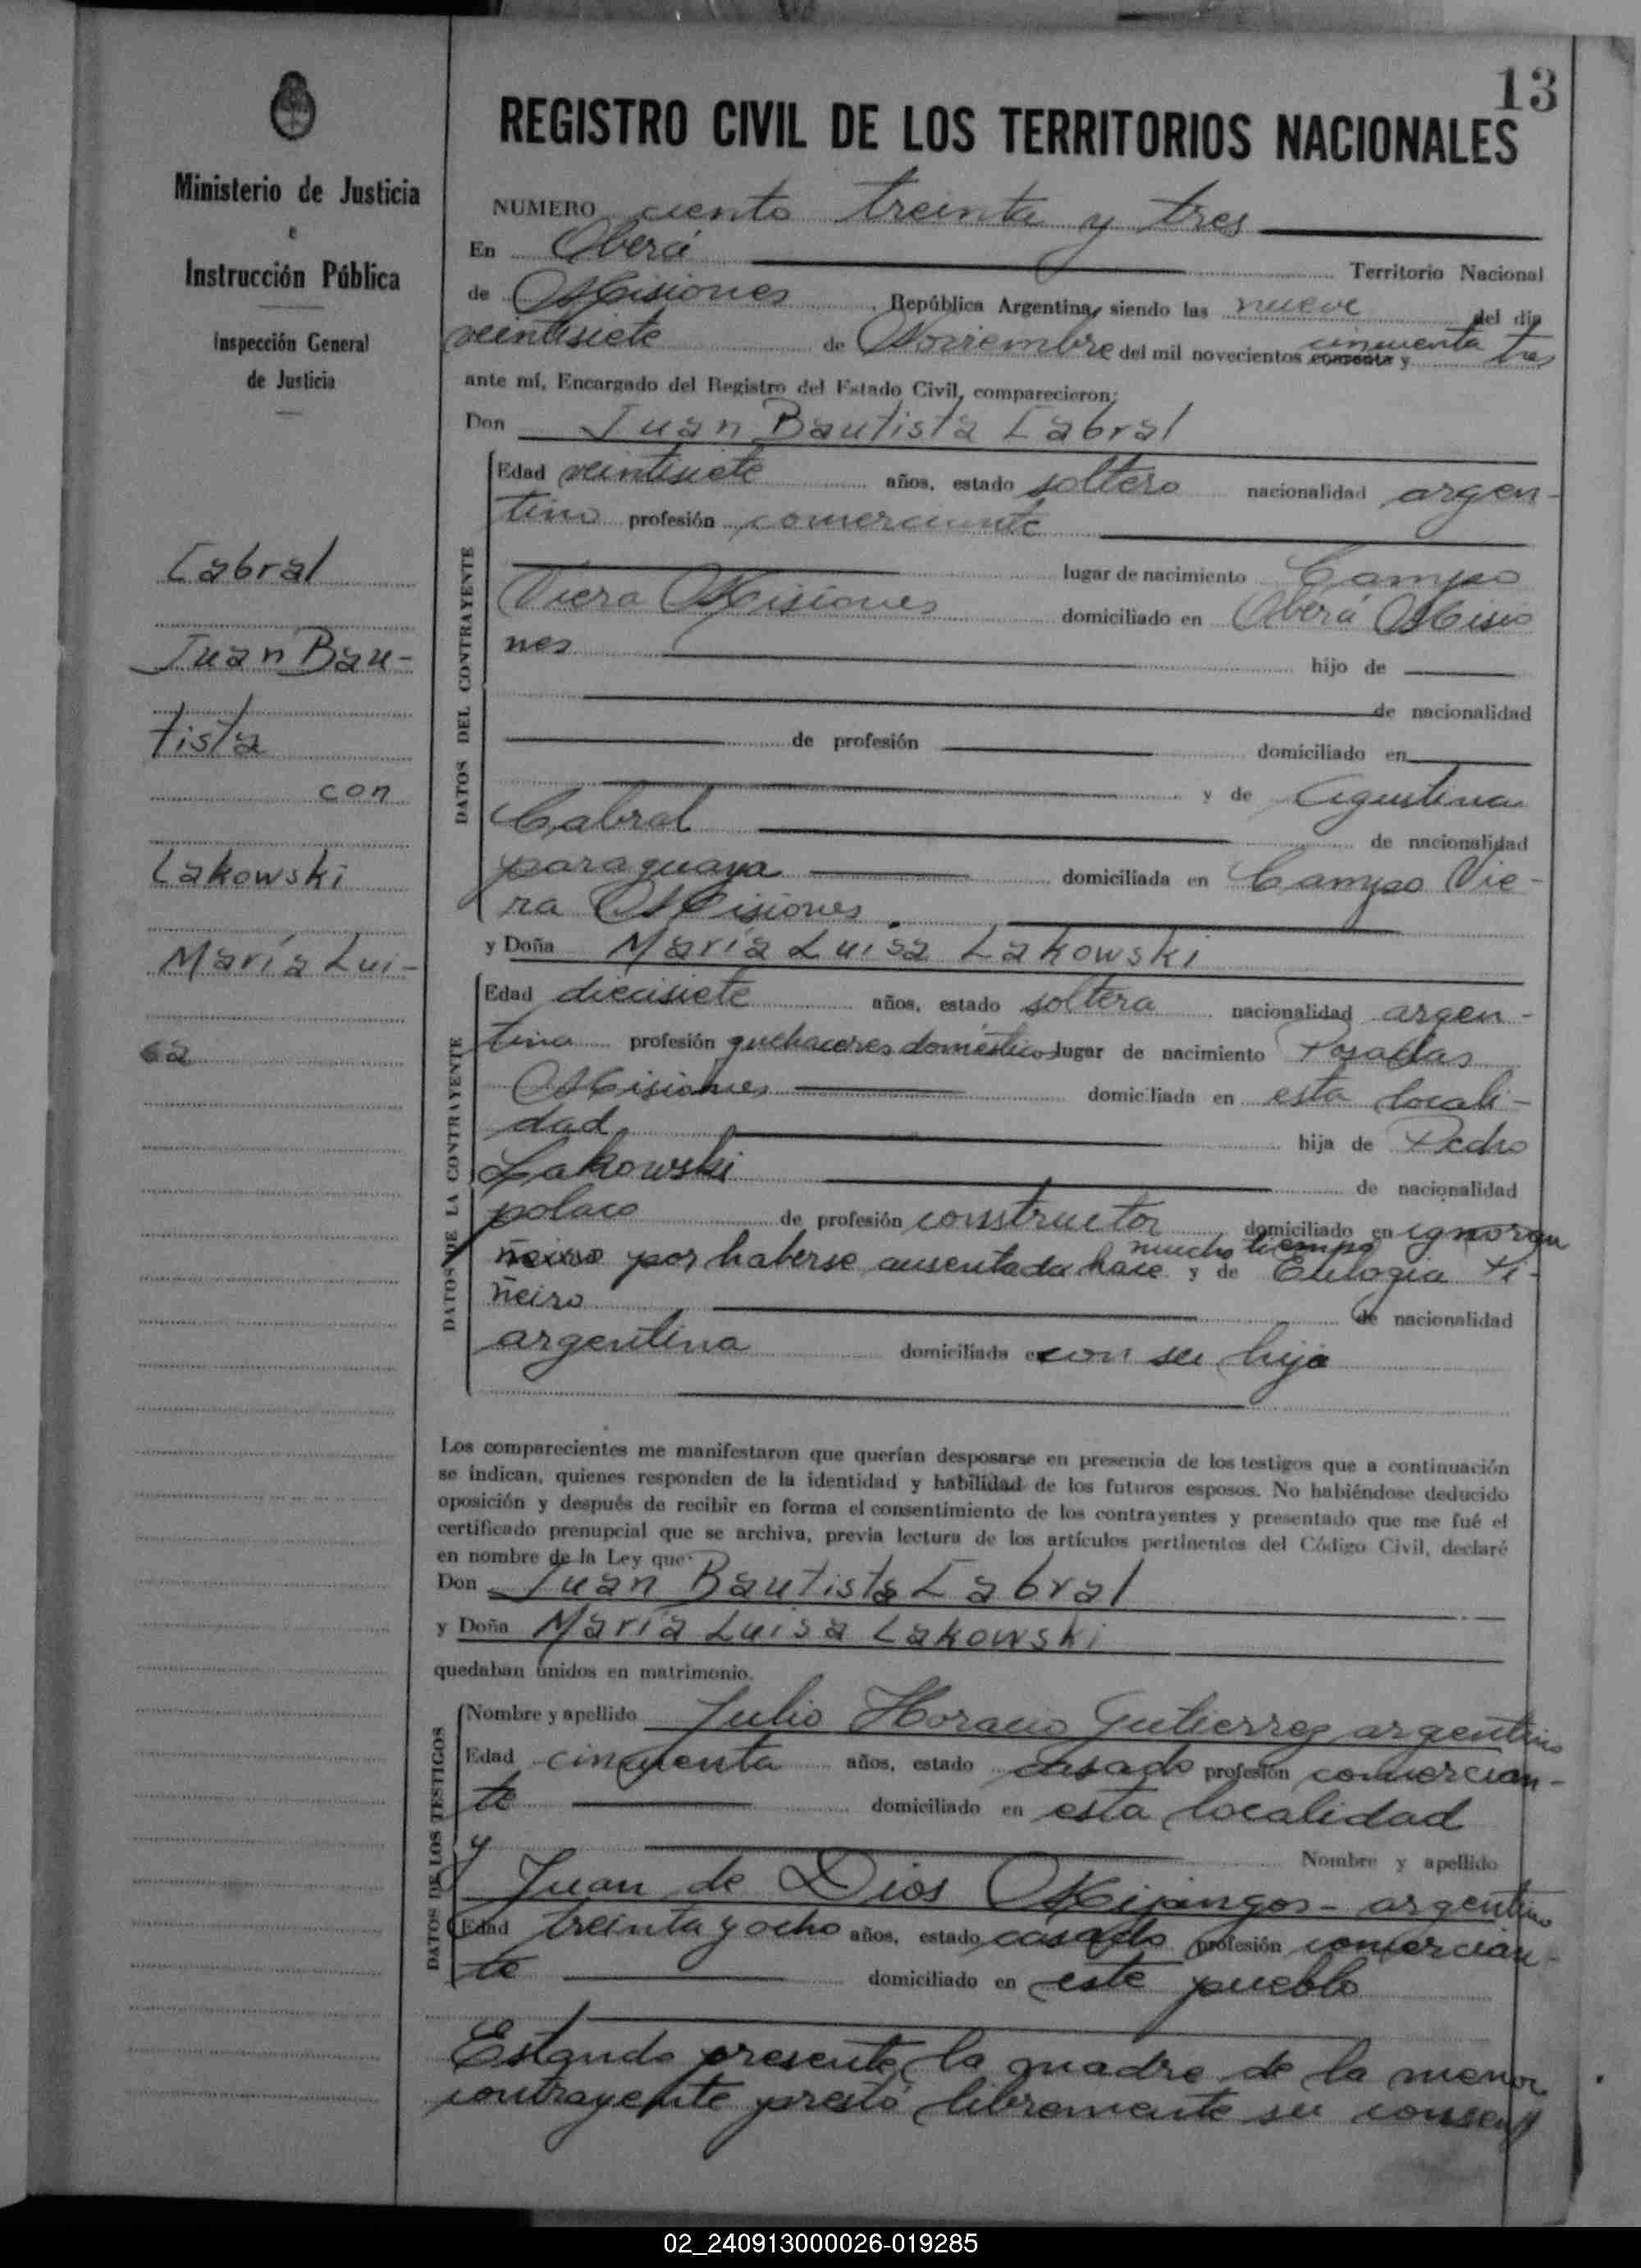 13
REGISTRO CIVIL DE LOS TERRITORIOS NACIONALES
Ministerio de Justicia
e
Instrucción Pública
Inspección General
de Justicia
Cabral
Juan Bau-
tista
con
Lakowski
María Lui-
sa
NUMERO ciento treinta y tres
En Oberá Territorio Nacional
de Misiones República Argentina, siendo las nueve del día
veintisiete de Noviembre del mil novecientos cincuenta y tres
ante mí, Encargado del Registro del Estado Civil, comparecieron:
Don Juan Bautista Cabral
DATOS DEL CONTRAYENTE
Edad veintisiete años, estado soltero nacionalidad argen-
tino profesión comerciante
lugar de nacimiento Campo
Viera Misiones domiciliado en Oberá Misio
nes hijo de
de nacionalidad
de profesión domiciliado en
y de Agustina
Cabral de nacionalidad
paraguaya domiciliada en Campo Vie-
ra Misiones
y Doña María Luisa Lakowski
DATOS DE LA CONTRAYENTE
Edad diecisiete años, estado soltera nacionalidad argen-
tina profesión quehaceres domésticos lugar de nacimiento Posadas
Misiones domiciliada en esta locali-
dad hija de Pedro
Lakowski de nacionalidad
polaco de profesión constructor domiciliado en ignoran
mucho tiempo
por haberse ausentada hace y de Eulogia Pi-
ñeiro de nacionalidad
argentina domiciliada en con su hija
Los comparecientes me manifestaron que querían desposarse en presencia de los testigos que a continuación
se indican, quienes responden de la identidad y habilidad de los futuros esposos. No habiéndose deducido
oposición y después de recibir en forma el consentimiento de los contrayentes y presentado que me fué el
certificado prenupcial que se archiva, previa lectura de los artículos pertinentes del Código Civil, declaré
en nombre de la Ley que
Don Juan Bautista Cabral
y Doña María Luisa Lakowski
quedaban unidos en matrimonio.
DATOS DE LOS TESTIGOS
Nombre y apellido Julio Horacio Gutierrez argentino
Edad cincuenta años, estado casado profesión comercian-
te domiciliado en esta localidad
y Nombre y apellido
Juan de Dios Mijangos - argentino
Edad treinta y ocho años, estado casado profesión comercian-
te domiciliado en este pueblo
Estando presente la madre de la menor
contrayente prestó libremente su consen
02_240913000026-019285